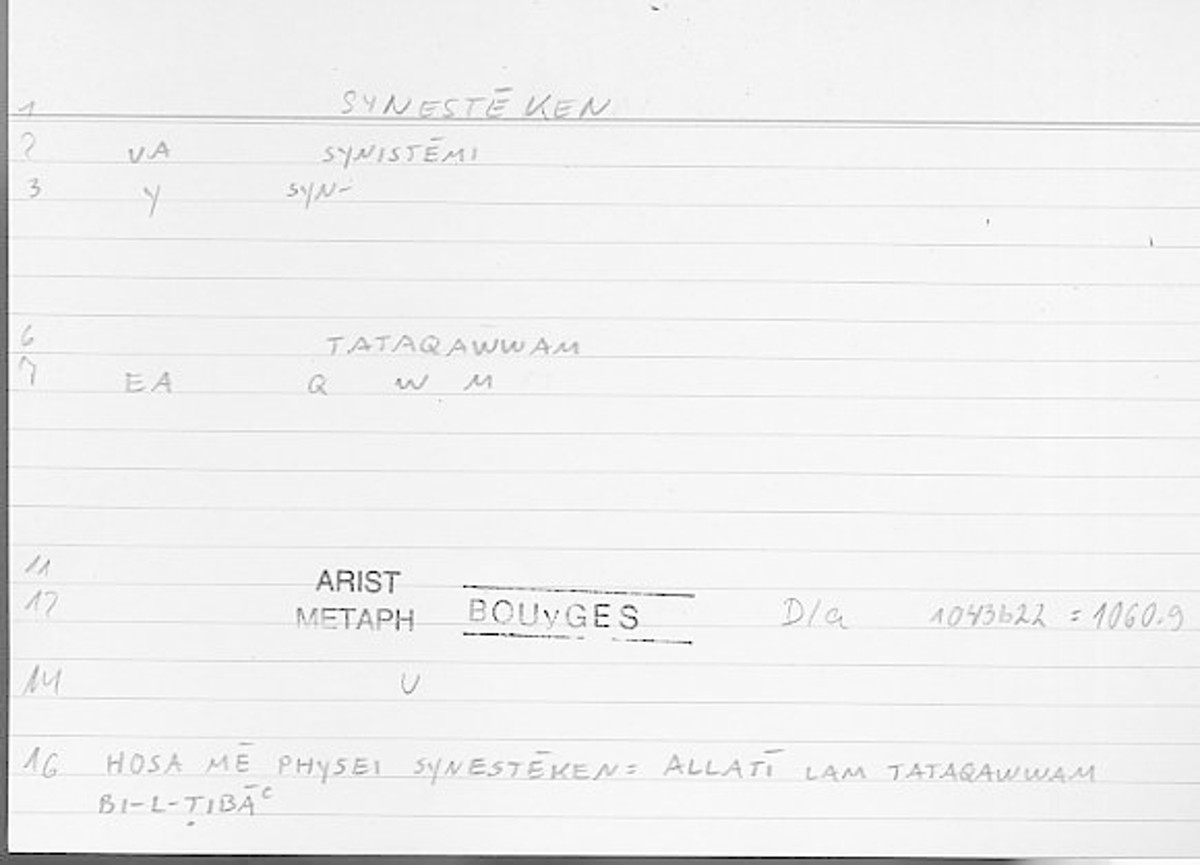 1 SYNESTĒKEN
2 VA SYNISTĒMI
3 Y SYN-
6 TATAQAWWAM
7 EA Q W M
11 ARIST
12 METAPH BOUYGES D/a 1043b22 = 1060.9
14 U
16 HOSA MĒ PHYSEI SYNESTĒKEN = ALLATĪ LAM TATAQAWWAM
BI-L-ṬIBĀʿ